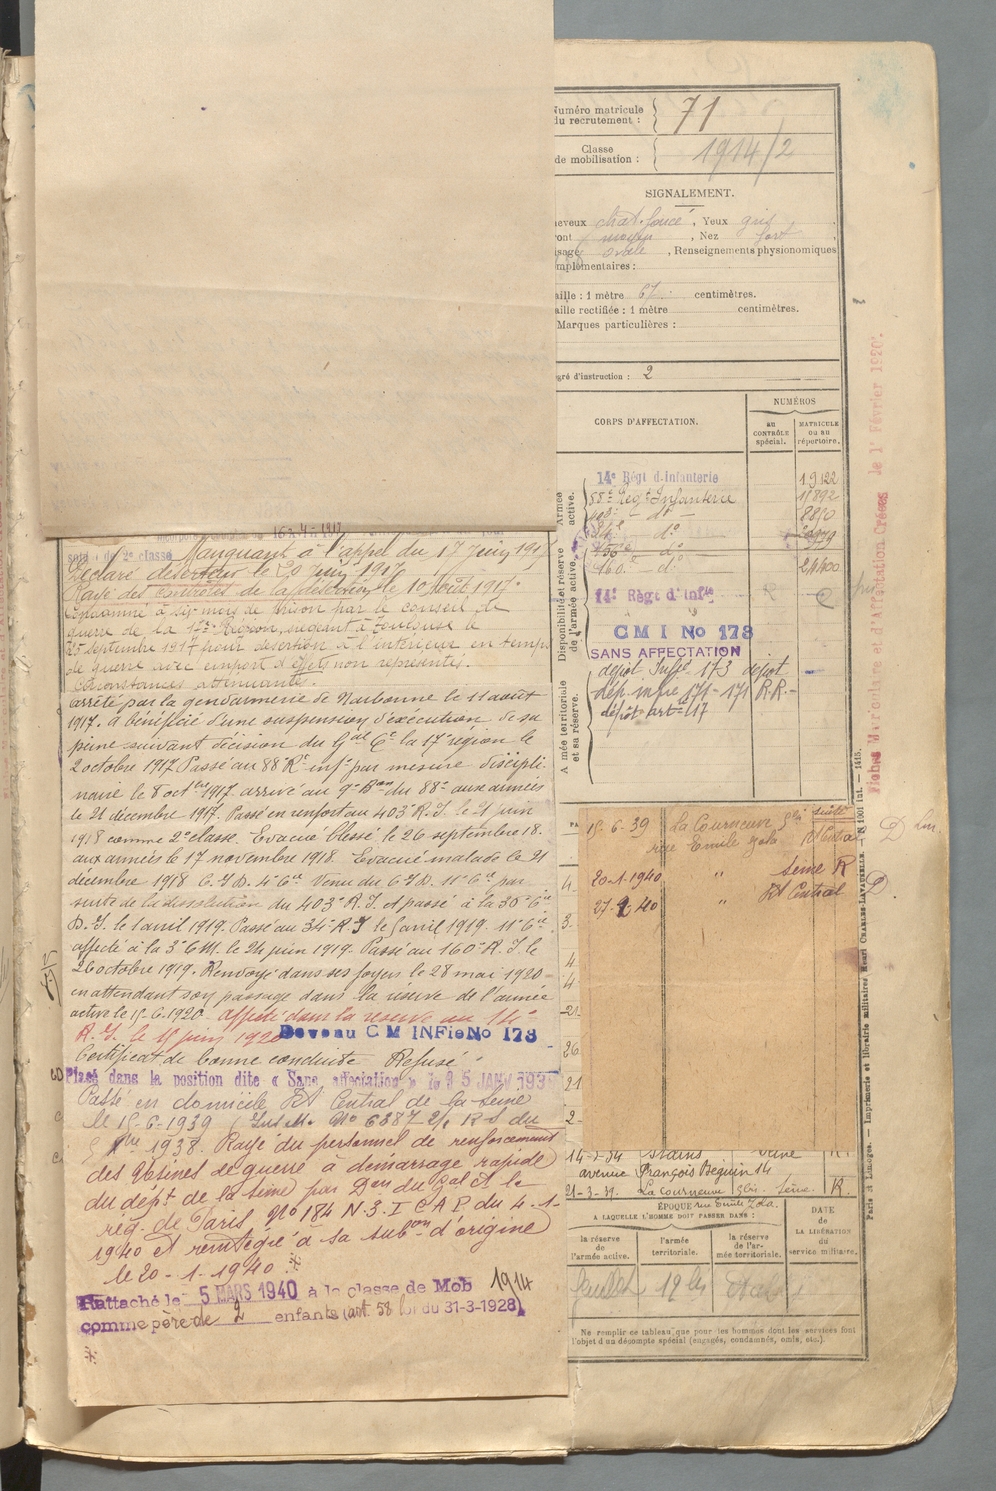 Numéro matricule
du recrutement : 71
Classe
de mobilisation : 1914/2
SIGNALEMENT.
heveux chat. foncé, Yeux gris
ront moyen, Nez fort
isage ovale, Renseignements physionomiques
mplémentaires :
aille : 1 mètre 67 centimètres.
aille rectifiée : 1 mètre centimètres.
Marques particulières :
egré d'instruction : 2
CORPS D'AFFECTATION.
NUMÉROS
AU CONTRÔLE spécial.
MATRICULE OU AU répertoire.
Armée active.
Disponibilité et réserve de l'armée active.
A mée territoriale et sa réserve.
14e Régt d'infanterie 19122
88e Régt Infanterie 11892
403e - do - 8890
34e do
do
160e - do 24600
14e Régt d'Infie
C M I No 173
SANS AFFECTATION
dépôt Infie 173 dépôt
dép. mre 171 - 171 R.R. -
dépôt art 417
Fiches Matriculaire et d'Affectation Créées le 1r Février 1920.
16-4-1917
soldat de 2e classe Manquant à l'appel du 17 juin 191
Déclaré déserteur le 20 juin 1917
Rayé des contrôles de la désertion le 10 août 1917.
Condamné à six mois de prison par le conseil de
guerre de la 17e Région, siégeant à Toulouse le
25 septembre 1917 pour désertion à l'intérieur en temps
de guerre avec emport d'effets non représentés.
Circonstances atténuantes.
arrêté par la gendarmerie de Narbonne le 11 août
1917. a bénéficié d'une suspension d'exécution de sa
peine suivant décision du Gal Ct la 17e région le
2 octobre 1917 Passé au 88e Rt infie par mesure discipli-
naire le 8 octbre 1917. arrivé au 9e Bon du 88e aux armées
le 21 décembre 1917. Passé en renfort au 403e R.I. le 21 juin
1918 comme 2e classe. Evacué blessé le 26 septembre 18.
aux armées le 17 novembre 1918. Evacué malade le 21
décembre 1918 C.I.D. 4e Cie Venu du C.I.D. 11e Cie par
suite de la dissolution du 403e R.I. et passé à la 35e Cie
D.I. le 1 avril 1919. Passé au 34e R.I le 5 avril 1919. 11e Cie
affecté à la 3e C.M. le 24 juin 1919. Passé au 160e R.I. le
26 octobre 1919. Renvoyé dans ses foyers le 28 mai 1920-
en attendant son passage dans la réserve de l'armée
active le 15-6-1920 affecté dans la réserve au 14e
R.I. le 15 juin 1920 Devenu C M INFie No 173
Certificat de bonne conduite Refusé
Placé dans la position dite « Sans affectation » le 5 JANV 193
Passé en domicile Rt Central de la Seine
le 15-6-1939 (Inst. M. No 6387 2/ R-S du
1938. Rayé du personnel de renforcement
des usines de guerre à démarrage rapide
du dépt de la Seine par Don du Gal Ct la
rég. de Paris No 184 N.3.I C A P. du 4-1-
1940 et réintégré à sa subon d'origine
le 20-1-1940. *
Rattaché le 5 MARS 1940 à la classe de Mob 1914
comme père de 2 enfants (art. 58 loi du 31-3-1928)
*
15-6-39 La Courneuve 5bis Seine
rue Emile Zola Rt Central D
20-1-1940 " Seine R
27-2 40 " Rt Central D
14-2-34 Stains Seine R.
avenue François Béguin 14
21-3-39. La Courneuve 5bis Seine. R.
rue Emile Zola.
ÉPOQUE
A LAQUELLE L'HOMME DOIT PASSER DANS :
la réserve de l'armée active.
l'armée territoriale.
la réserve de l'armée territoriale.
DATE de LA LIBÉRATION du service militaire.
Ne remplir ce tableau que pour les hommes dont les services font
l'objet d'un décompte spécial (engagés, condamnés, omis, etc.).
Paris et Limoges. — Imprimerie et librairie militaires Henri CHARLES-LAVAUZELLE. — N° 1001 int. — 1415.